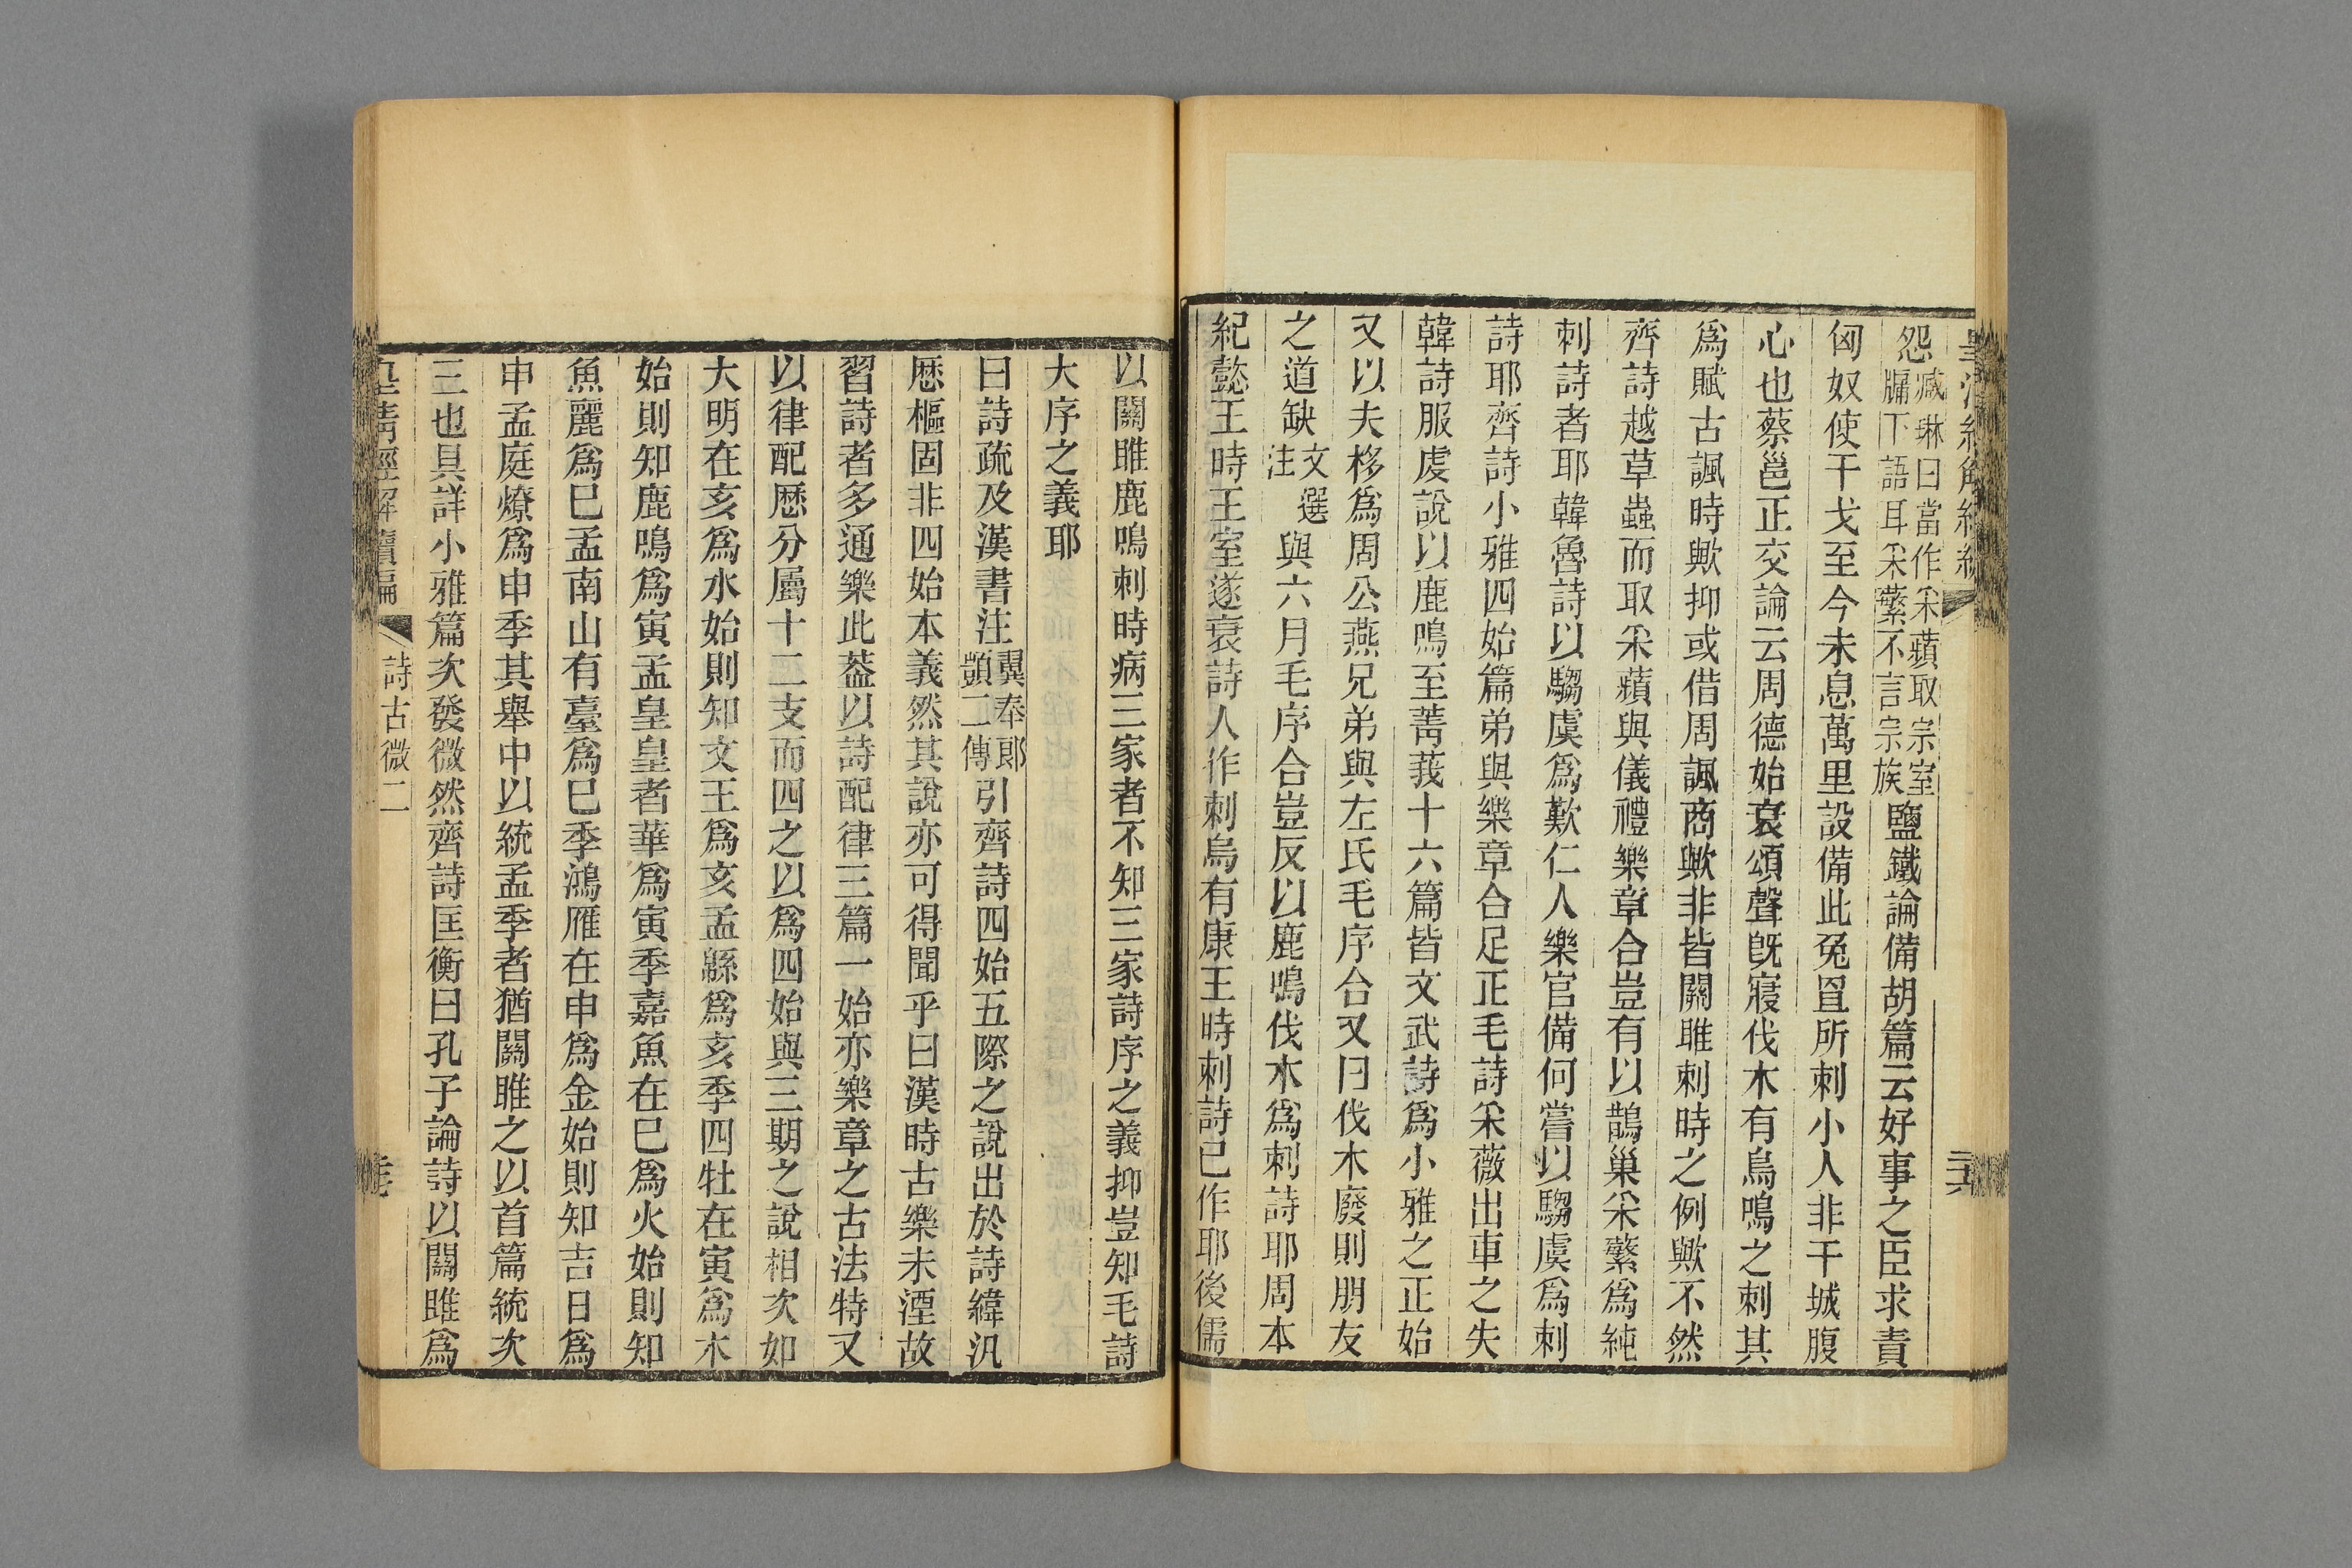 怨臧琳曰當作采蘋取宗室牖下語耳采蘩不言宗族鹽鐵論備胡篇云好事之臣求責
匈奴使干戈至今未息萬里設備此兔罝所刺小人非干城腹
心也蔡邕正交論云周德始衰頌聲旣寢伐木有鳥鳴之刺其
爲賦古諷時歟抑或借周諷商歟非皆關雎刺時之例歟不然
齊詩越草蟲而取采蘋與儀禮樂章合豈有以鵲巢采蘩爲純
刺詩者耶韓魯詩以騶虞爲歎仁人樂官備何嘗以騶虞爲刺
詩耶齊詩小雅四始篇弟與樂章合足正毛詩采薇出車之失
韓詩服虔說以鹿鳴至菁莪十六篇皆文武詩爲小雅之正始
又以夫栘爲周公燕兄弟與左氏毛序合又曰伐木廢則朋友
之道缺文選注與六月毛序合豈反以鹿鳴伐木爲刺詩耶周本
紀懿王時王室遂衰詩人作刺烏有康王時刺詩已作耶後儒
以關雎鹿鳴刺時病三家者不知三家詩序之義抑豈知毛詩
大序之義耶
曰詩疏及漢書注翼奉郎顗二傳引齊詩四始五際之說出於詩緯汎
厯樞固非四始本義然其說亦可得聞乎曰漢時古樂未湮故
習詩者多通樂此葢以詩配律三篇一始亦樂章之古法特又
以律配厯分屬十二支而四之以爲四始與三期之說相次如
大明在亥爲水始則知文王爲亥孟緜爲亥季四牡在寅爲木
始則知鹿鳴爲寅孟皇皇者華爲寅季嘉魚在巳爲火始則知
魚麗爲巳孟南山有臺爲巳季鴻雁在申爲金始則知吉日爲
申孟庭燎爲申季其舉中以統孟季者猶關雎之以首篇統次
三也具詳小雅篇次發微然齊詩匡衡曰孔子論詩以關雎爲
皇淸經解續編
詩古微二